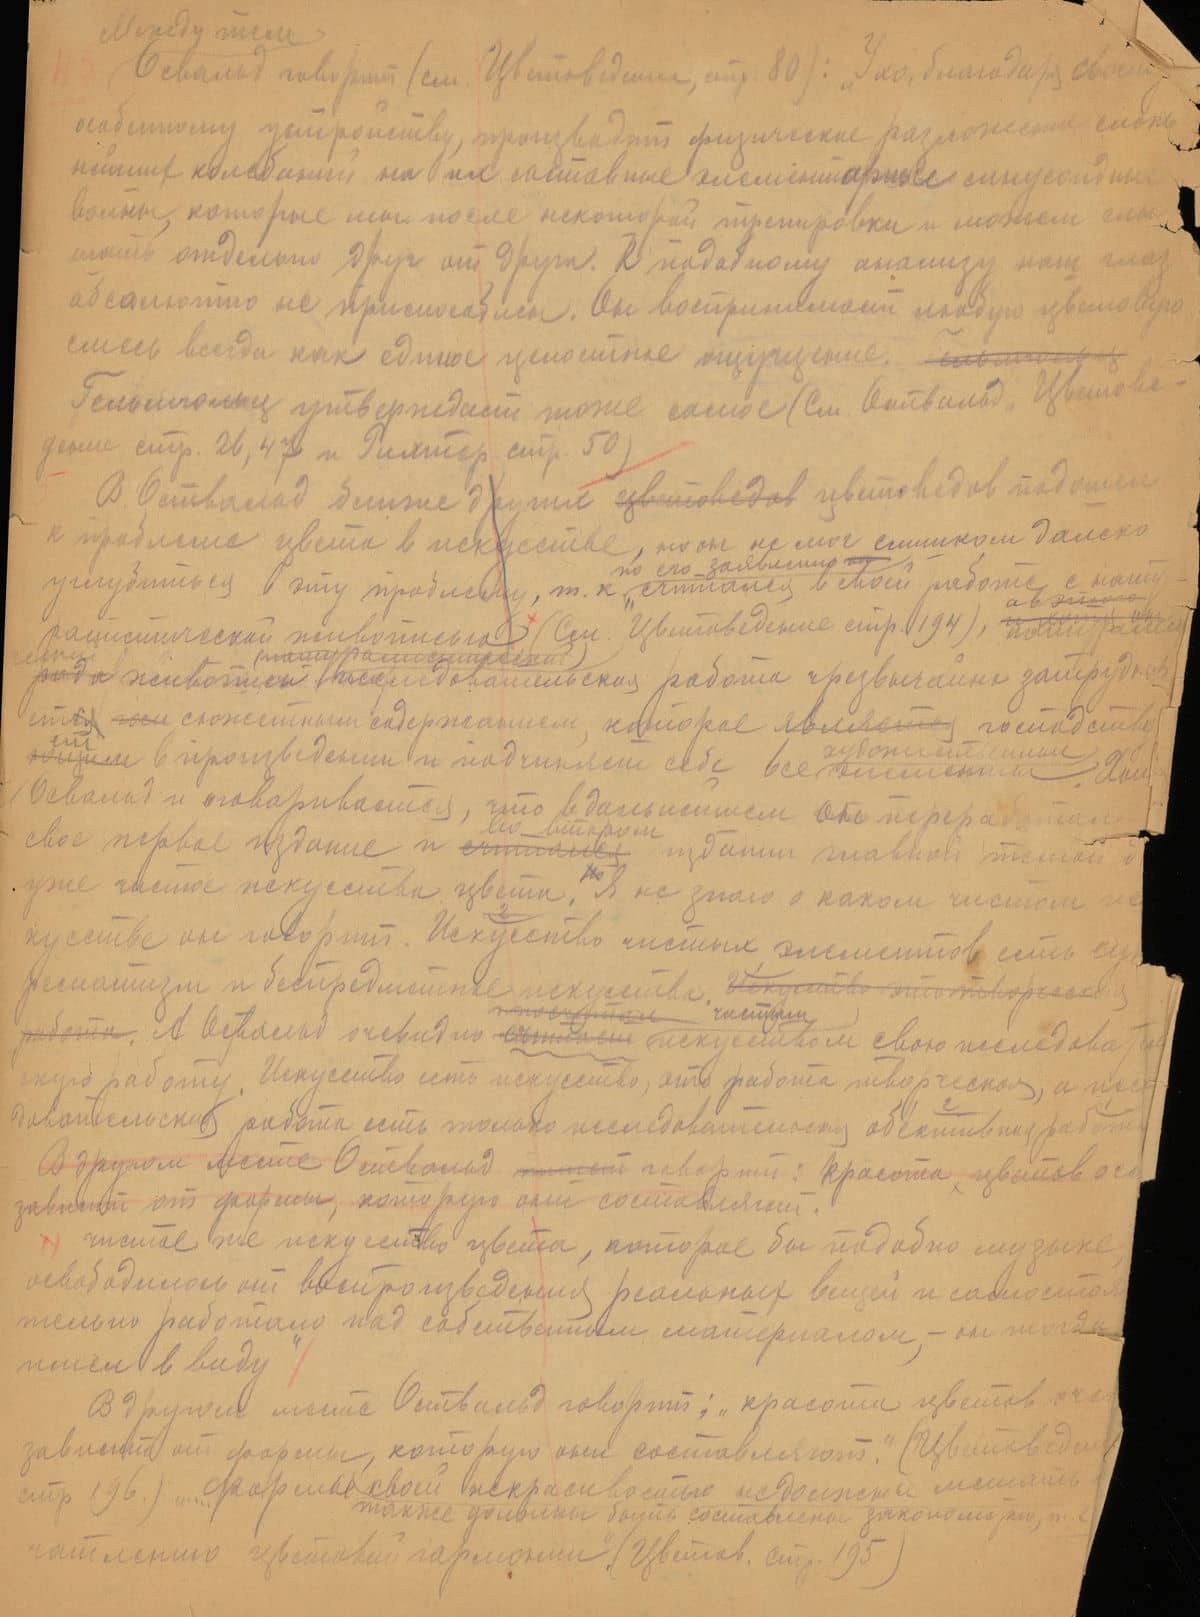 Между тем
Освальд говорит (см. Цветоведение, стр. 80): „Ухо, благодаря своему
особенному устройству, производит физическое разложение слож
нейших колебаний на их составные элементарные синусоидные
волны, которые мы после некоторой тренировки и можем слы
шать отдельно друг от друга. К подобному анализу наш глаз
абсолютно не приспособлен. Он воспринимает любую цветовую
смесь всегда как единое целостное ощущение. Гельмгольц
Гельмгольц утверждает тоже самое (См. Оствальд „Цветове-
дение стр. 26, 47 и Рихтер стр. 50)
В. Оствальд ближе других цветоведов цветоведов подошел
к проблеме цвета в искусстве, но он не мог слишком далеко
по его заявлению он
углубиться в эту проблему, т.к. „считался в своей работе с нату-
ралистической живописью" (См. Цветоведение стр. 194),
натуралистической
рода живописи исследовательская работа чрезвычайно затрудня
ется сюжетным содержанием, которое является господство
художественные
в произведении и подчиняет себе все элементы. Хотя
Освальд и оговаривается, что в дальнейшем он переработал
во втором
свое первое издание и считался издании главной темой
уже чистое искусства цвета. Но я не знаю о каком чистом ис
кусстве он говорит. Искусство чистых элементов есть суп
рематизм и беспредметное искусства. Искусство это творческая
чистым
работа. А Оствальд очевидно искусством свою исследователь
скую работу. Искусство есть искусство, это работа творческая, а иссле
довательская работа есть только исследовательская обективная работа
В другом месте Оствальд говорит: красота цветов
зависит от формы, которую они составляют.
чистое же искусство цвета, которое бы подобно музыке,
освободилось от воспроизведения реальных вещей и самостоя
тельно работало над собственным материалом, – он тогда
имел в виду"
В другом месте Оствальд говорит; „красота цветов
зависит от формы, которую они составляют." (Цветоведен
стр 196.) „... формы своей некрасивостью не должны мешать
также должны быть составлены закономерно,
чатлению цветовой гармонии". (Цветов. стр. 195)